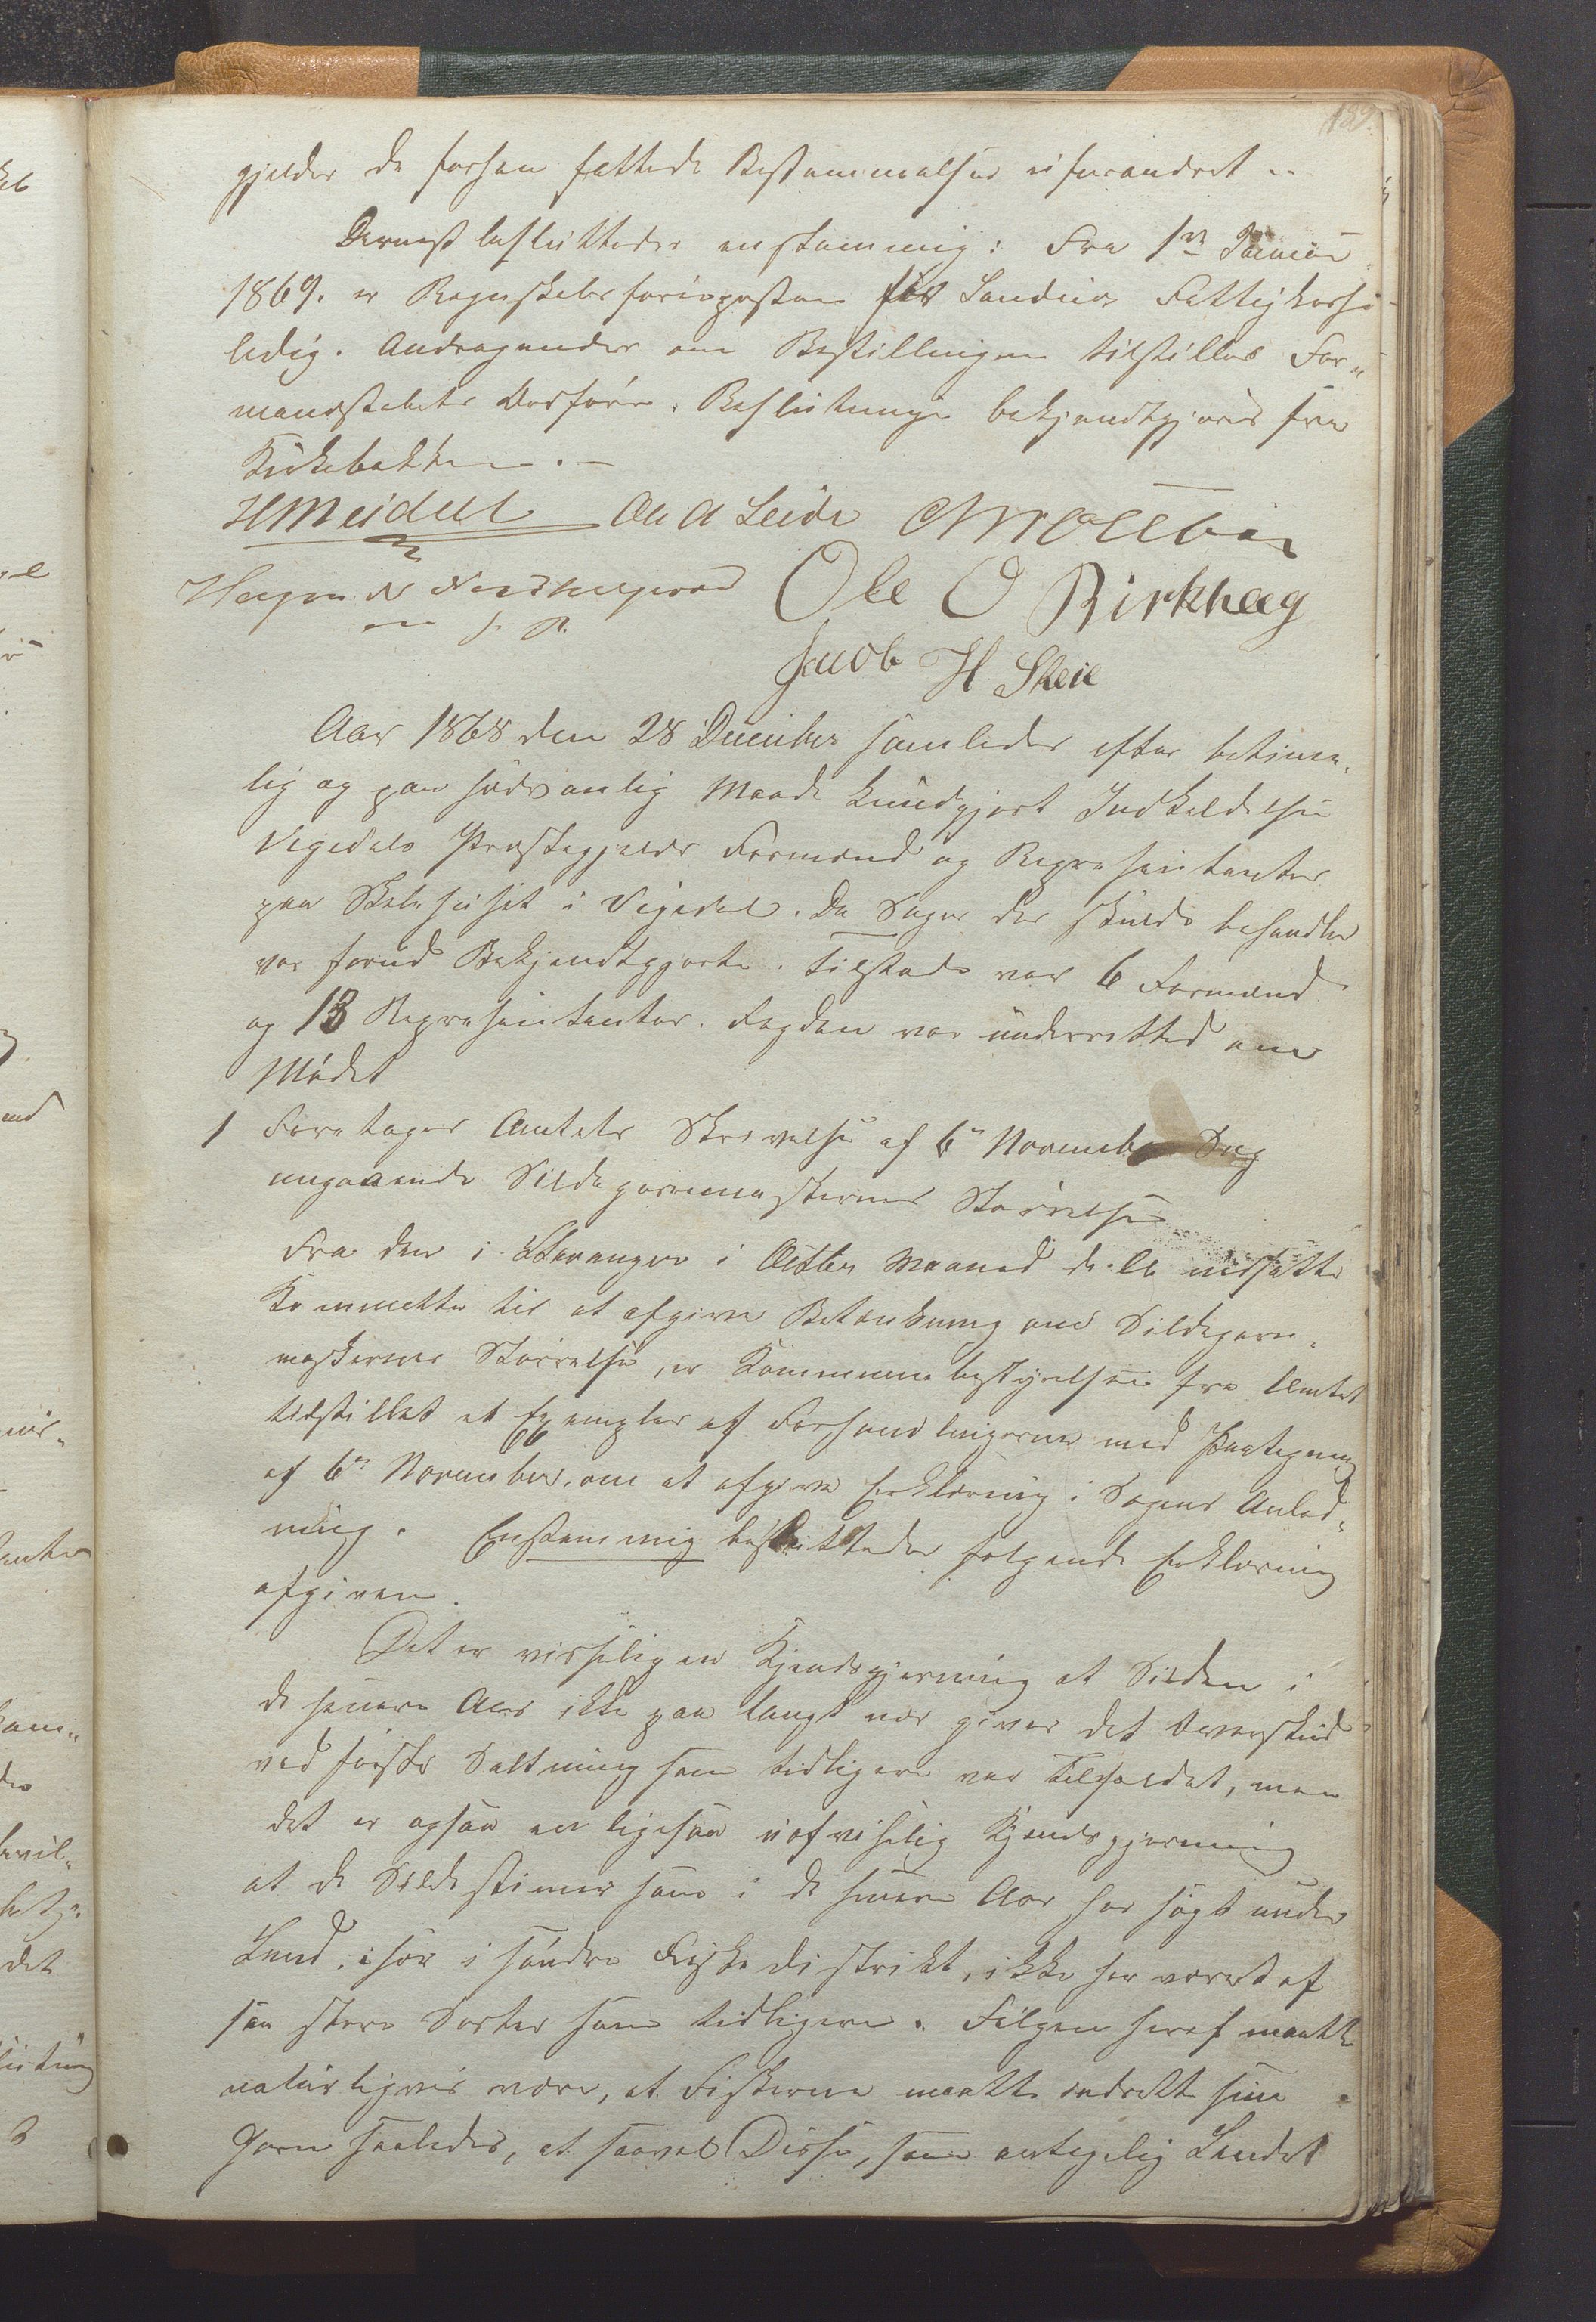 189
gjelder de forhen fattede Bestemmelser uforandret ..
Dernæst besluttedes enstemmig: Fra 1ste Januar
1869. er Regnskabsførerposten for Sandeids Fattigkasse
ledig. Andragender om Bestillingen tilstilles For„
mandskabets Ordfører. Beslutningen bekjendtgjøres fra
Kirkebakken. —
H Meidell Ole A Leide
Ole O Birkhaug
m. f. P.
Jacob H Skeie
Aar 1868 den 28 December samledes efter betime„
lig og paa sædvanlig Maade kundgjort Indkaldelse
Vigedals Præstegjelds Formænd og Repræsentanter
paa Skolehuset i Vigedal. De Sager der skulde behandles
var forud Bekjendtgjorte. Tilstede var 6 Formænd
og 13 Repræsentanter. Fogden var underrettet om
Mødet
1 Foretages Amtets Skrivelse af 6te November Sag
angaaende Sildegarnmaskernes Størrelse
Fra den i Stavanger i Octbr Maaned d. A. nedsatte
Kommitte til at afgive Betænkning om Sildegarn„
maskernes Størrelse, er Kommunebestyrelsen fra Amtet
tilstillet et Exemplar af Forhandlingerne med Paategning
af 6te November, om at afgive Erklæring i Sagens Anled„
ning. Enstemmig besluttedes følgende Erklæring
afgiven.
Det er visselig en Kjendsgjerning at Silden i
de senere Aar ikke paa langt nær giver det Overskud
ved første Saltning som tidligere var Tilfældet, men
det er ogsaa en ligesaa uafviselig Kjendsgjerning
at de Sildestimer som i de senere Aar har søgt under
Land, især i søndre Fiskedistrikt, ikke har været af
saa store Sorter som tidligere. Følgen heraf maatte
naturligvis være, at Fiskerne maatte indrette sine
Garn saaledes, at saavel Disse, som antagelig Landet